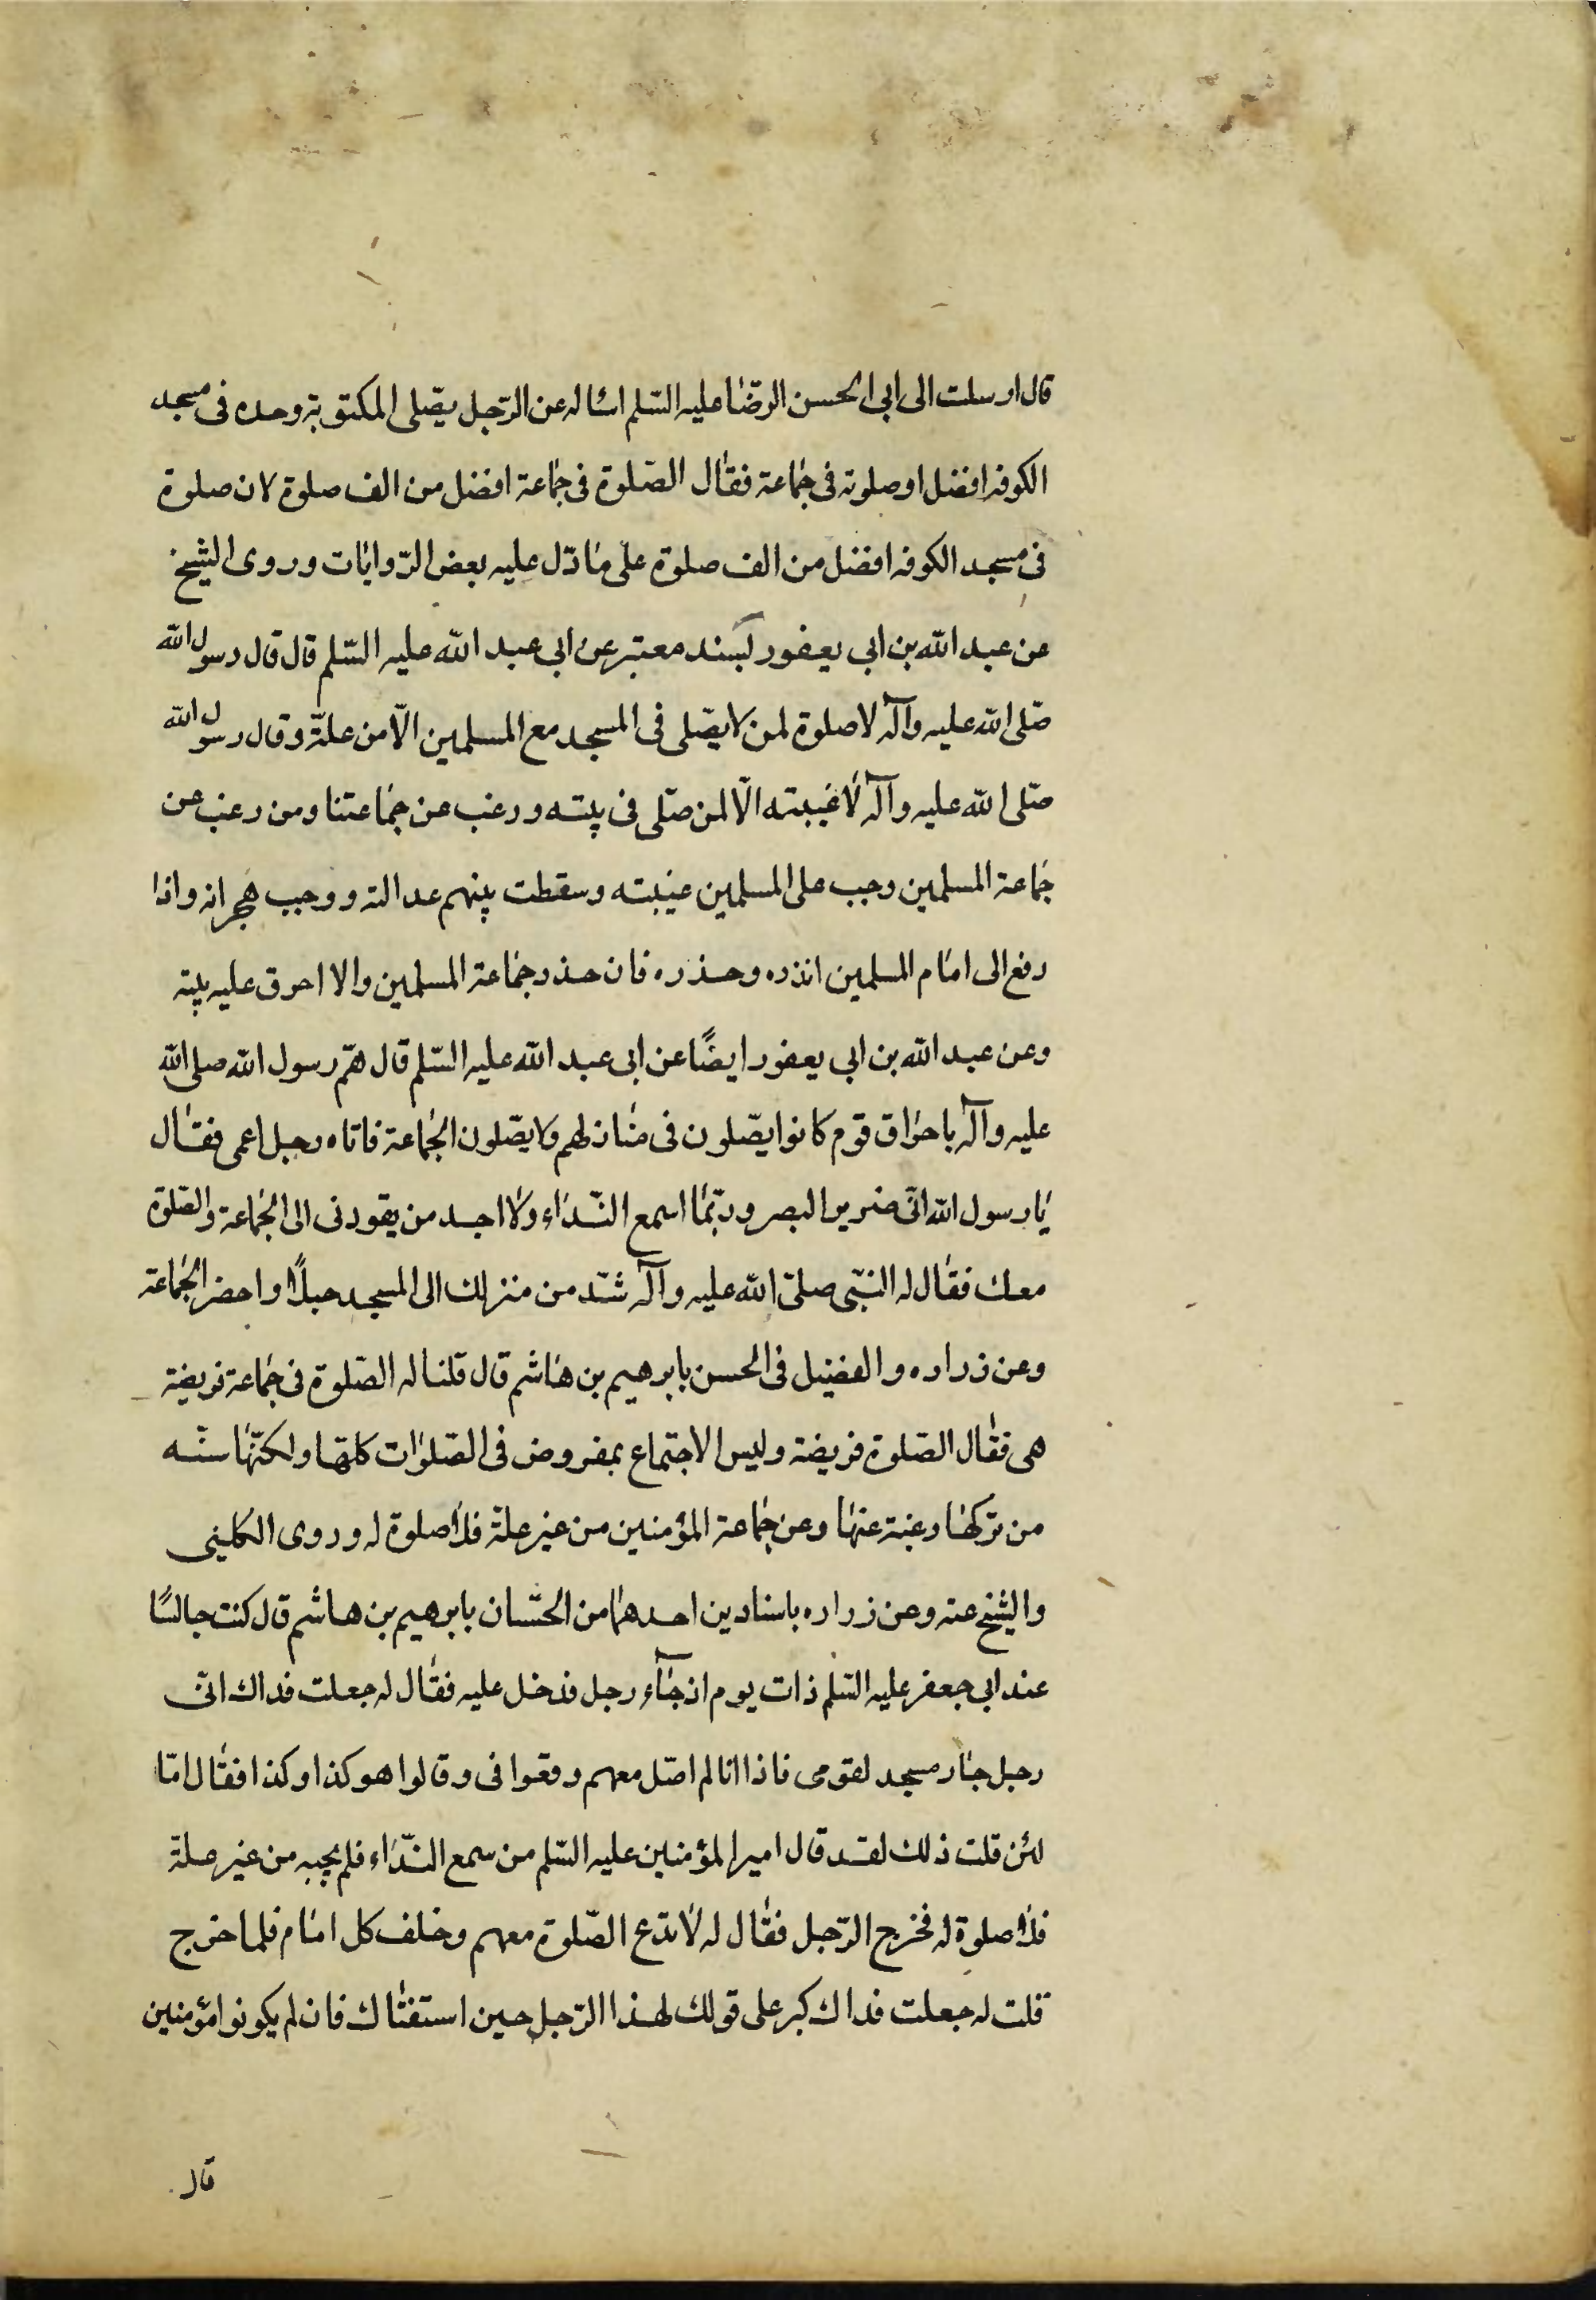 قال ارسلت الى ابى الحسن الرضا عليه السّلم اسئاله عن الرّجل يصّلى المكتوبة وحده فى مسجد
الكوفه افضل او صلوته فى جماعة فقال الصّلوة فى جماعة افضل من الف صلوة لان صلوة
فى مسجد الكوفه افضل من الف صلوة على ما دّل عليه بعض الرّوايات وروى الشيخ
عن عبد الله بن ابى يعفور بسند معتبر عن ابى عبد الله عليه السّلم قال قال رسول الله
صّلى الله عليه وآله لا صلوة لمن لا يصّلى فى المسجد مع المسلمين الّا من علّة وقال رسول الله
صّلى الله عليه وآله لا غيبته الّا لمن صّلى فى بيته ورغب عن جماعتنا ومن رغب عن
جماعة المسلمين وجب على المسلمين غيبته وسقطت بينهم عدالته ووجب هجرانه واذا
رفع الى امام المسلمين انذره وحذره فان حذر جماعة المسلمين والا احرق عليه بيته
وعن عبد الله بن ابى يعفور ايضًا عن ابى عبد الله عليه السّلم قال همّ رسول الله صلى الله
عليه وآله باحراق قوم كانوا يصّلون فى منازلهم ولا يصّلون الجماعة فاتاه رجل اعمى فقال
يا رسول الله انّى ضرير البصر وربّما اسمع النّداء ولا اجد من يقودنى الى الجماعة والصّلوة
معك فقال له النبّى صلىّ الله عليه وآله شّد من منزلك الى المسجد حبلًا واحضر الجماعة
وعن زراره والفضيل فى الحسن بابرهيم بن هاشم قال قلنا له الصّلوة فى جماعة فريضة
هى فقال الصّلوة فريضة وليس الاجتماع بمفروض فى الصّلوات كلهّا ولكنّها سنّه
من تركها رغبة عنها وعن جماعة المؤمنين من غير علّة فلا صلوة له وروى الكلينى
والشيخ عنه وعن زراره باسنادين احدهما من الحسّان بابرهيم بن هاشم قال كنت جالسًا
عند ابى جعفر عليه السّلم ذات يوم اذ جآء رجل فدخل عليه فقال له جعلت فداك انّى
رجل جار مسجد لقومى فاذا انا لم اصّل معهم وقعوا فى وقالوا هو كذا وكذا فقال امّا
لئن قلت ذلك لقد قال امير المؤمنين عليه السّلم من سمع النّداء فلم يجبه من غير علّة
فلا صلوة له فخرج الرّجل فقال له لا تدع الصّلوة معهم وخلف كل امام فلما خرج
قلت له جعلت فداك كبر على قولك لهذا الرّجل حين استفتاك فان لم يكونوا مؤمنين
قال